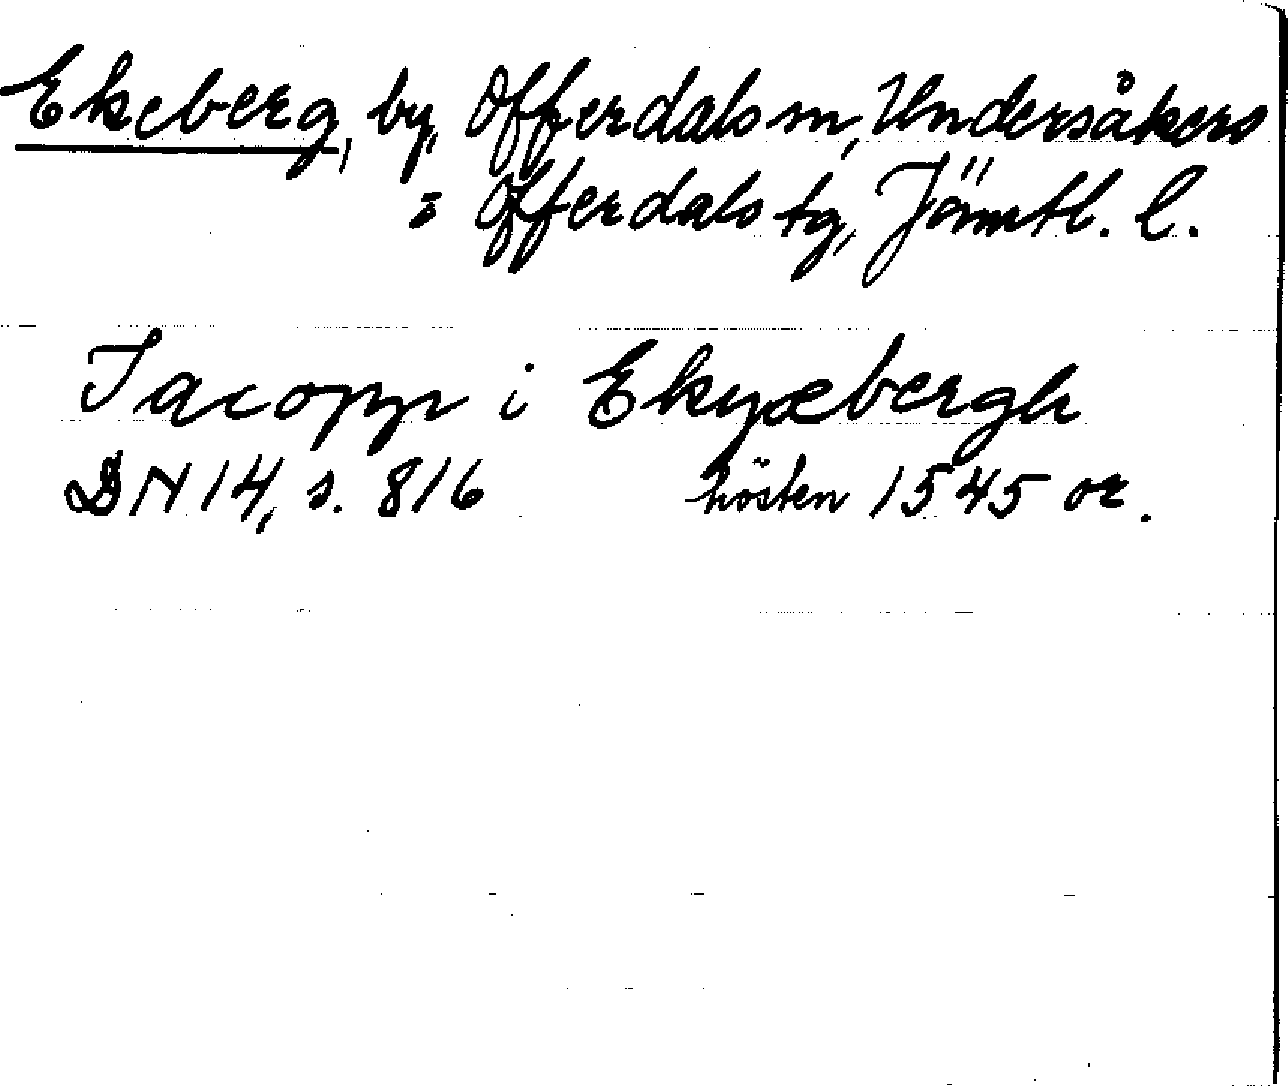 Ekeberg, by, Offerdals sn, Undersåkers
= Offerdals tg, Jämtl. l.
Jacopp i Ekyxbergh
DN 14, s. 816 hösten 1545 or.